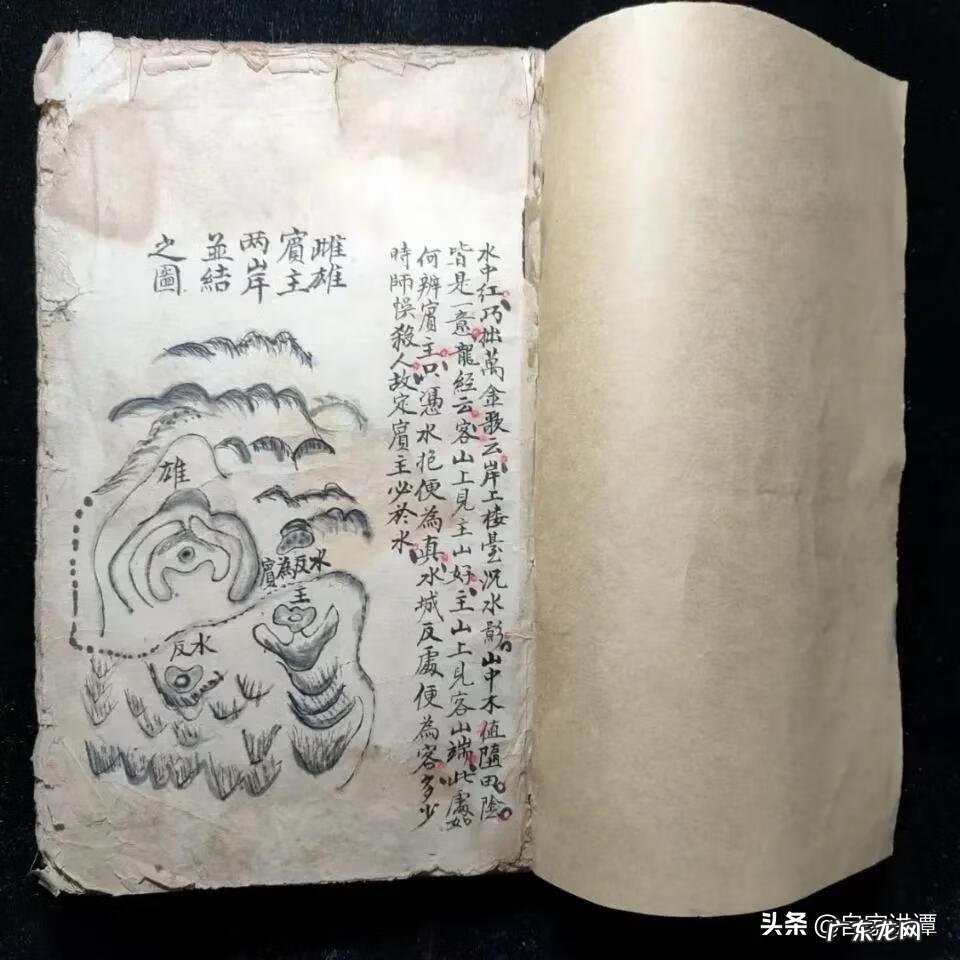 水中紅巧拙萬金歌云岸上楼臺沉水影山中木值墮田陰
皆是一意龍經云客山上見主山好主山上見客山端此處如
何辨賓主只憑水抱便為真水城反處便為客多少
時師悞殺人故定賓主必於水
雌雄
賓主
两岸
並結
之圖
雄
水反為賓
主
水反
头条 @客家洪谭
广东龙网